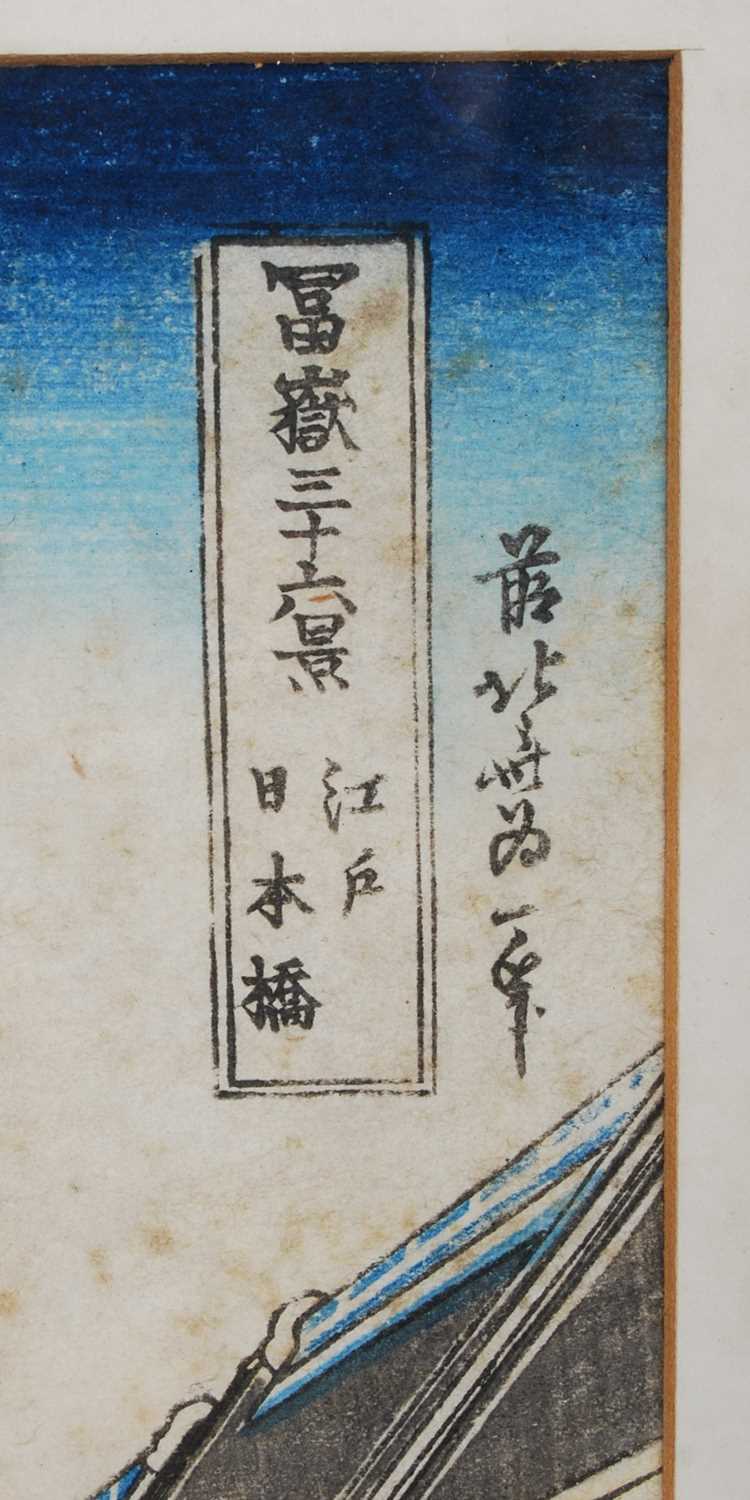 冨嶽三十六景
江戸
日本橋
前北斎為一筆